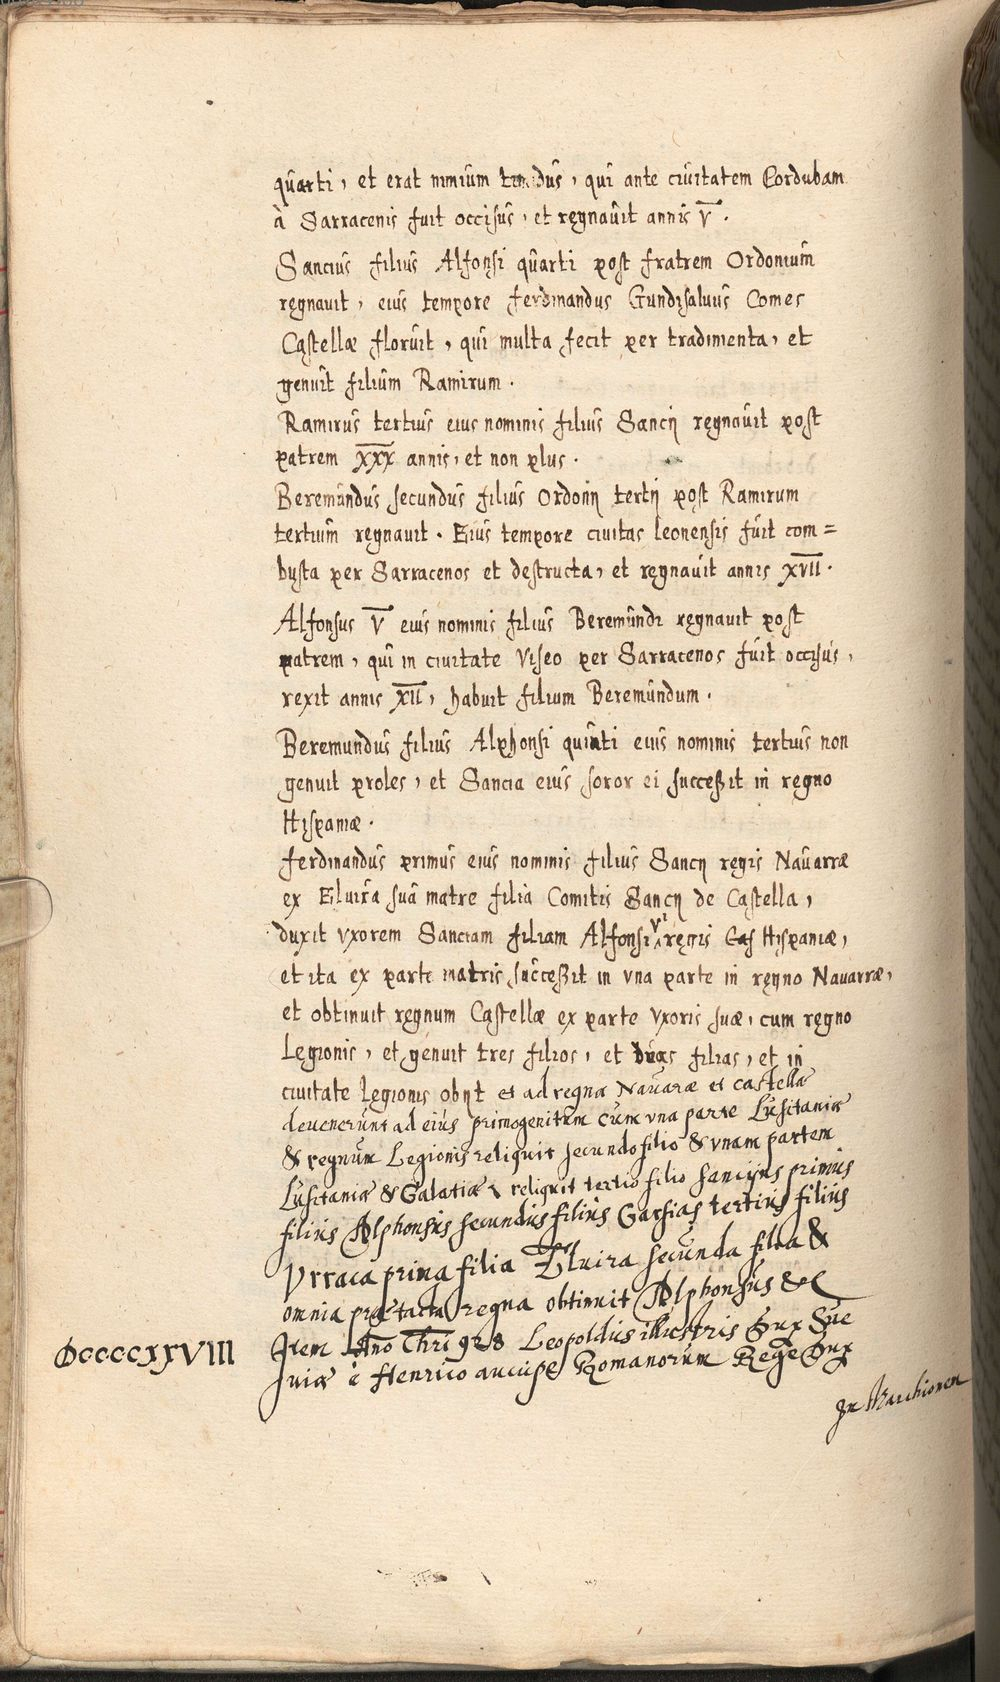 quarti, et erat nimium timidus, qui ante ciuitatem Cordubam
à Sarracenis fuit occisus, et regnauit annis V.
Sancius filius Alfonsi quarti post fratrem Ordonium
regnauit, eius tempore ferdinandus Gundisaluus Comes
Castellæ floruit, qui multa fecit per tradimenta, et
genuit filium Ramirum.
Ramirus tertius eius nominis filius Sancij regnauit post
patrem XXX annis, et non plus.
Beremundus secundus filius Ordonij tertij post Ramirum
tertium regnauit. Eius tempore ciuitas leonensis fuit com=
busta per Sarracenos et destructa, et regnauit annis XVII.
Alfonsus V eius nominis filius Beremundi regnauit post
patrem, qui in ciuitate Viseo per Sarracenos fuit occisus,
rexit annis XII, habuit filium Beremundum.
Beremundus filius Alphonsi quinti eius nominis tertius non
genuit proles, et Sancia eius soror ei successit in regno
Hispaniæ.
ferdinandus primus eius nominis filius Sancij regis Nauarræ
ex Eluira sua matre filia Comitis Sancij de Castella,
duxit vxorem Sanciam filiam Alfonsi Vi regis Hispaniæ,
et ita ex parte matris successit in vna parte in regno Nauarræ,
et obtinuit regnum Castellæ ex parte vxoris suæ, cum regno
Legionis, et genuit tres filios, et duas filias, et in
ciuitate Legionis obijt et ad regna Nauaræ et castellæ
deuenerunt ad eius primogenitum cum vna parte Lusitaniæ
& regnum Legionis reliquit secundo filio & vnam partem
Lusitaniæ & Galatiæ reliquit tertio filio sancijus primus
filius Alphonsus secundus filius Garsias tertius filius
Vrraca prima filia Eluira secunda filia &
omnia prætacta regna obtinuit Alphonsus &c
Item Año Chri 928 Leopoldus illustris Dux Sue
uiæ è Henrico aucupe Romanorum Rege Dux
ⅮCCCCXXVIII
In Marchionem